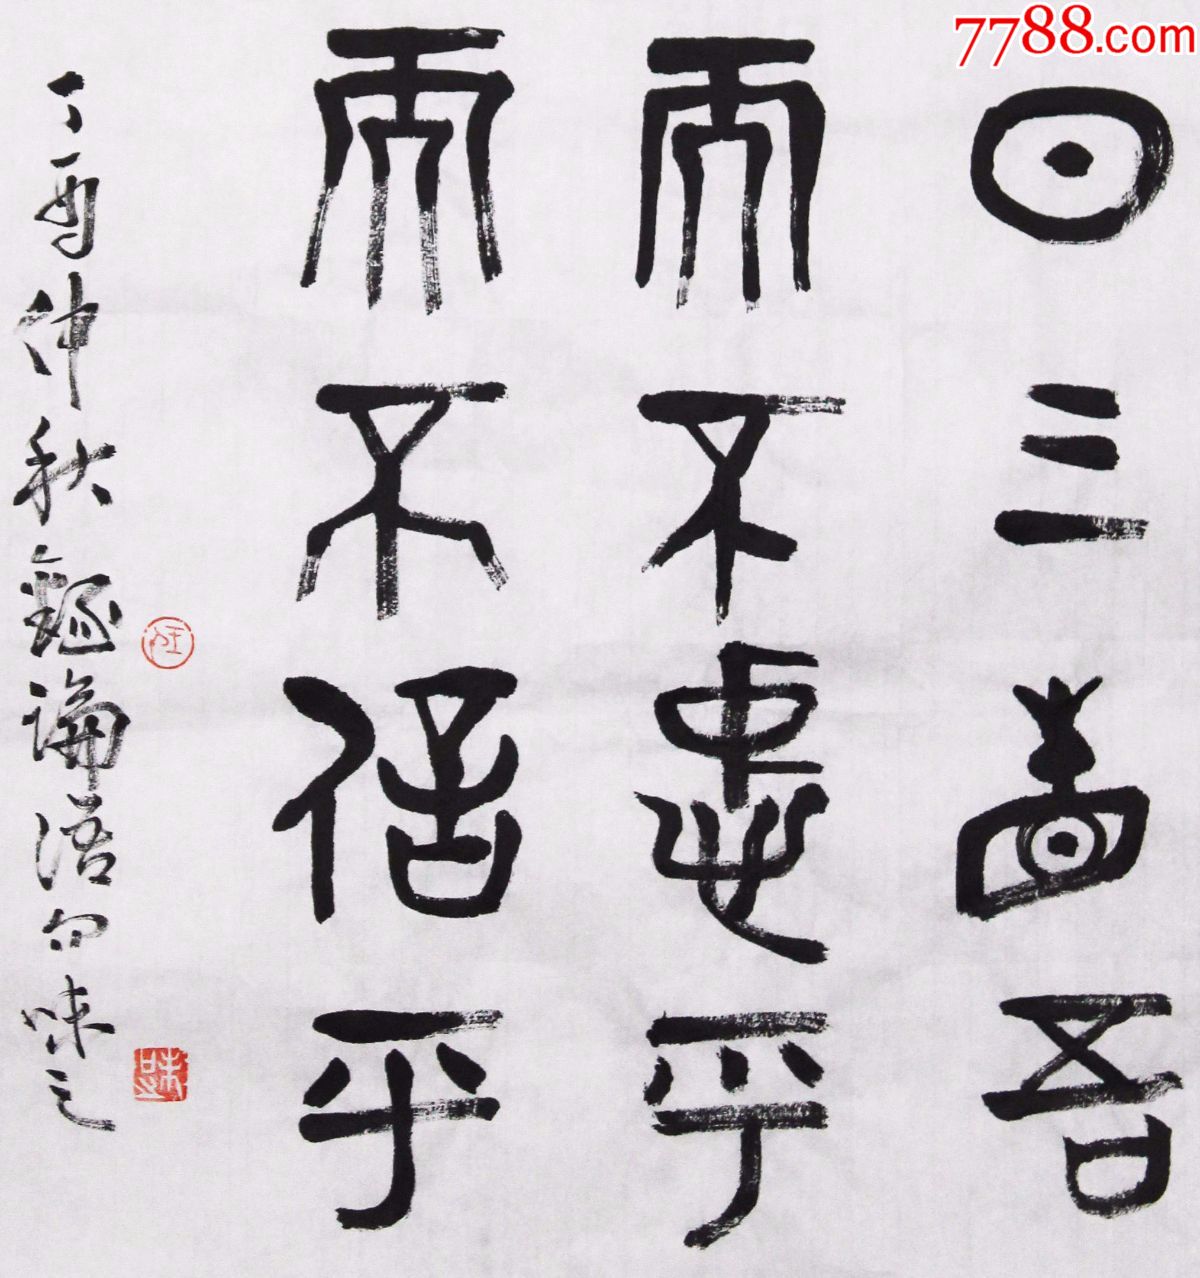 7788.com
日三省吾
而不忠乎
而不信乎
丁酉仲秋錄論語句味之
味之